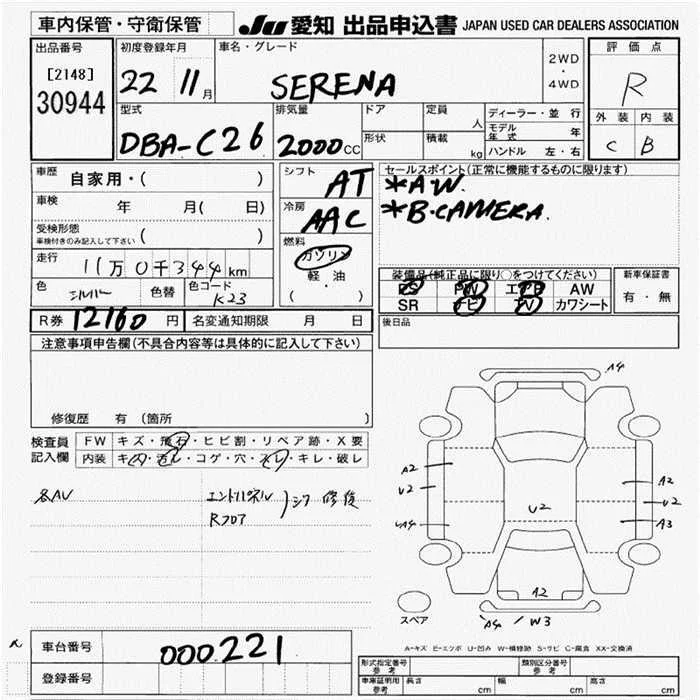 車内保管・守衛保管
JU 愛知 出品申込書 JAPAN USED CAR DEALERS ASSOCIATION
出品番号
[2148]
30944
初度登録年月
22 11月
車名・グレード
SERENA
2WD
・
4WD
評価点
R
外装 内装
C B
型式
DBA-C26
排気量
2000cc
ドア
形状
定員
人
積載
kg
ディーラー・並行
モデル年式 年
ハンドル 左・右
車歴
自家用・( )
車検
年 月( 日)
受検形態
車検付きのみ記入して下さい ( )
走行
11万0千344km
色
シルバー
色替
色コード
K23
シフト
AT
冷房
AAC
燃料
ガソリン
軽・油
( )
セールスポイント(正常に機能するものに限ります)
*AW.
*B.CAMERA.
装備品(純正品に限り○をつけてください)
PS PW エアB AW
SR ナビ TV カワシート
新車保証書
有・無
後日品
R券 12160 円
名変通知期限 月 日
注意事項申告欄(不具合内容等は具体的に記入して下さい)
修復歴 有 (箇所 )
検査員
記入欄
FW キズ・飛石・ヒビ割・リペア跡・X要
内装 キズ・汚レ・コゲ・穴・スレ・キレ・破レ
各AU
エンドパネル
Rフロア
シワ 修復
A4
A2
U2
A4
U2
A2
U2
A3
A2
A4
W3
スペア
A-キズ E-エクボ U-凹み W-補修跡 S-サビ C-腐食 XX-交換済
車台番号
000221
登録番号
型式指定番号
参考
類別区分番号
参考
車庫証明用
参考
長さ cm
幅 cm
高さ cm